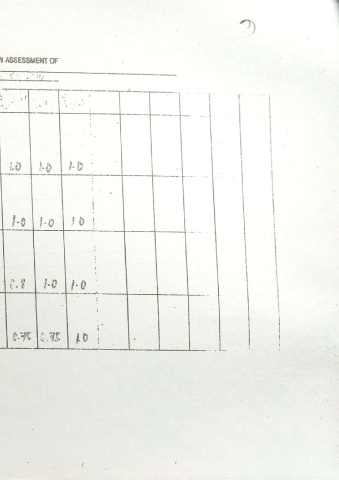 N ASSESSMENT OF
1.0 1.0 1.0
1.0 1.0 1.0
0.8 1.0 1.0
0.75 0.75 1.0